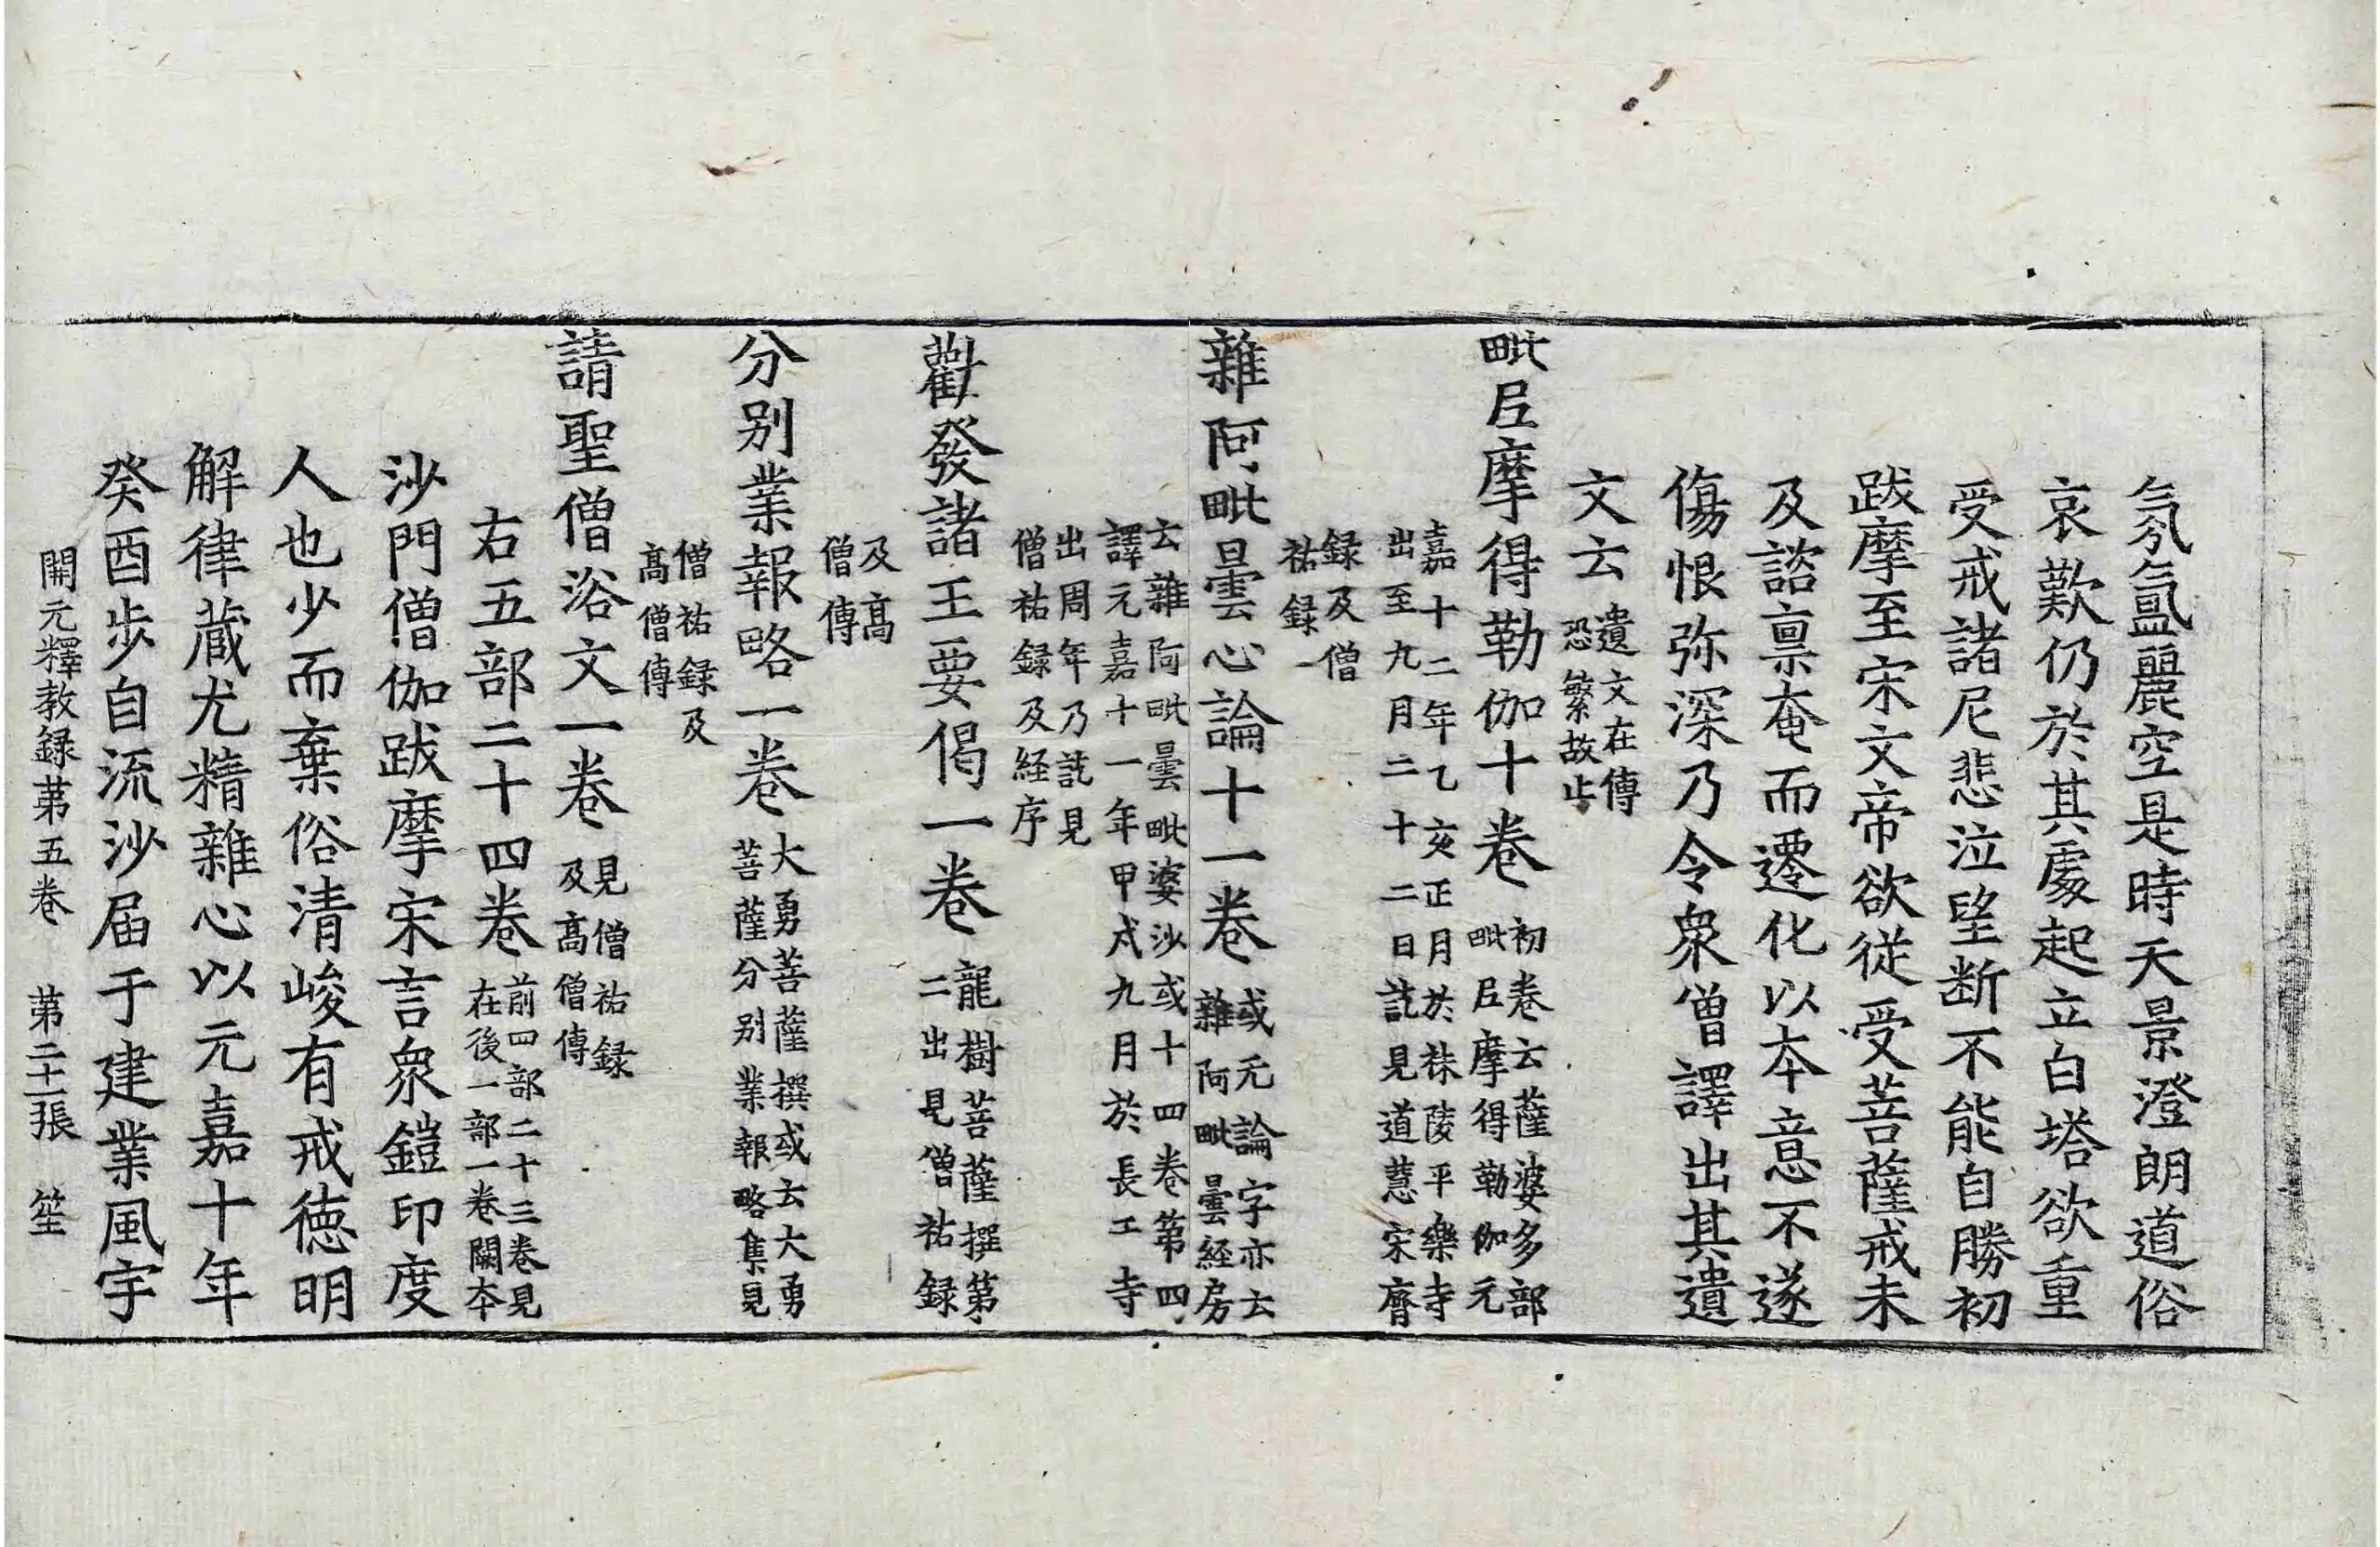 氛氳麗空是時天景澄朗道俗
哀歎仍於其處起立白塔欲重
受戒諸尼悲泣望断不能自勝初
跋摩至宋文帝欲從受菩薩戒未
及諮禀奄而遷化以本意不遂
傷恨弥深乃令衆僧譯出其遺
文云遺文在傳
恐繁故止
毗尼摩得勒伽十卷初卷云薩婆多部
毗尼摩得勒伽元
嘉十二年乙亥正月於秣陵平樂寺
出至九月二十二日訖見道慧宋齊
録及僧
祐録
雜阿毗曇心論十一卷或元論字亦云
雜阿毗曇経房
云雜阿毗曇毗婆沙或十四卷第四
譯元嘉十一年甲戌九月於長工寺
出周年乃訖見
僧祐録及経序
勸發諸王要偈一卷龍樹菩薩撰第
二出見僧祐録
及髙
僧傳
分别業報略一卷大勇菩薩撰或云大勇
菩薩分别業報略集見
僧祐録及
髙僧傳
請聖僧浴文一卷見僧祐録
及髙僧傳
右五部二十四卷前四部二十三卷見
在後一部一卷闕本
沙門僧伽跋摩宋言衆鎧印度
人也少而棄俗清峻有戒徳明
解律蔵尤精雜心以元嘉十年
癸酉歩自流沙届于建業風宇
開元釋教録第五卷 第二十一張 笙